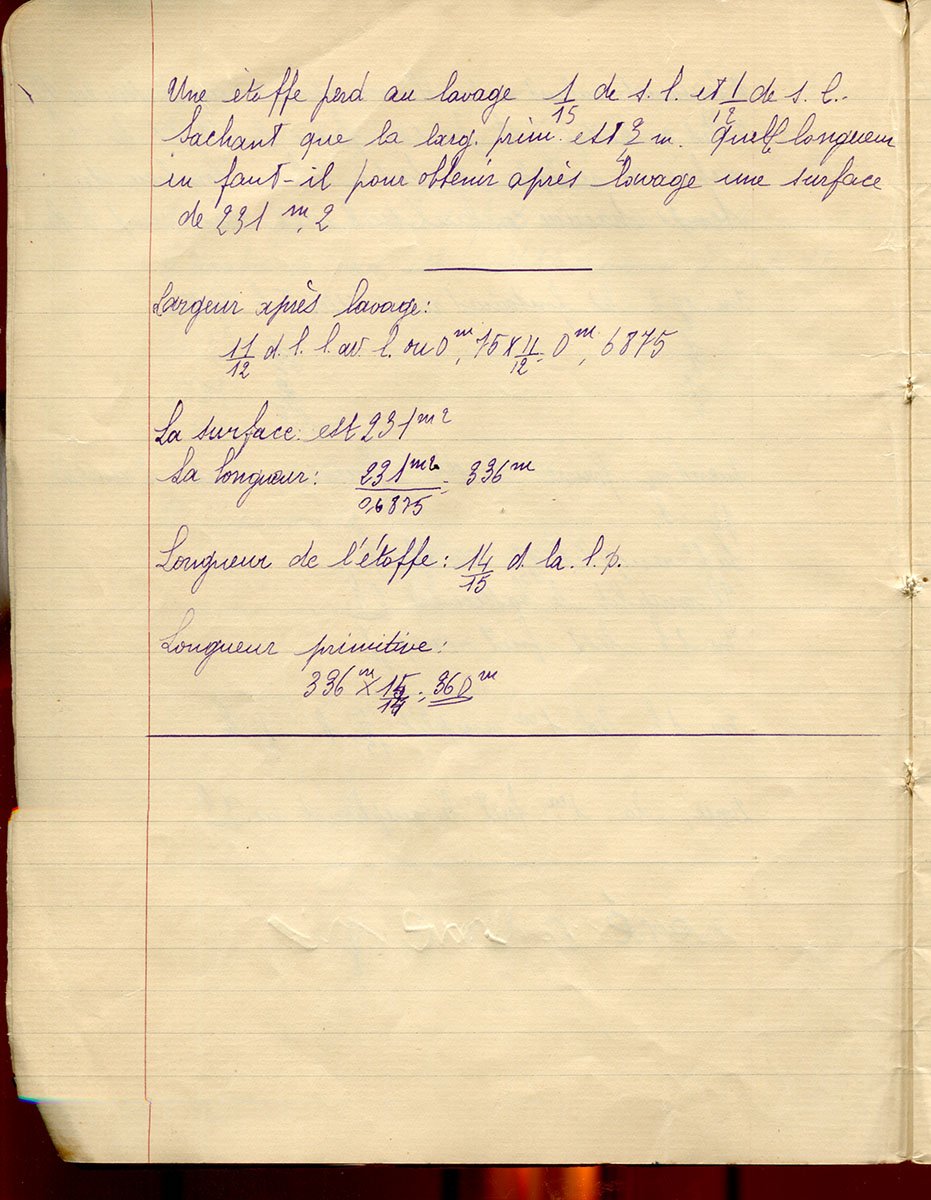 Une étoffe perd au lavage 1/15 de s. l. et 1/12 de s. l.
Sachant que la larg. prim. est 3/4 m. Quelle longueur
en faut-il pour obtenir après lavage une surface
de 231 m2
Largeur après lavage:
11/12 d. l. l. av. l. ou 0m,75 × 11/12 = 0m,6875
La surface: est 231m2
La longueur: 231m2/0,6875 = 336m
Longueur de l'étoffe: 14/15 d. la. l. p.
Longueur primitive:
336m × 15/14 = 360m